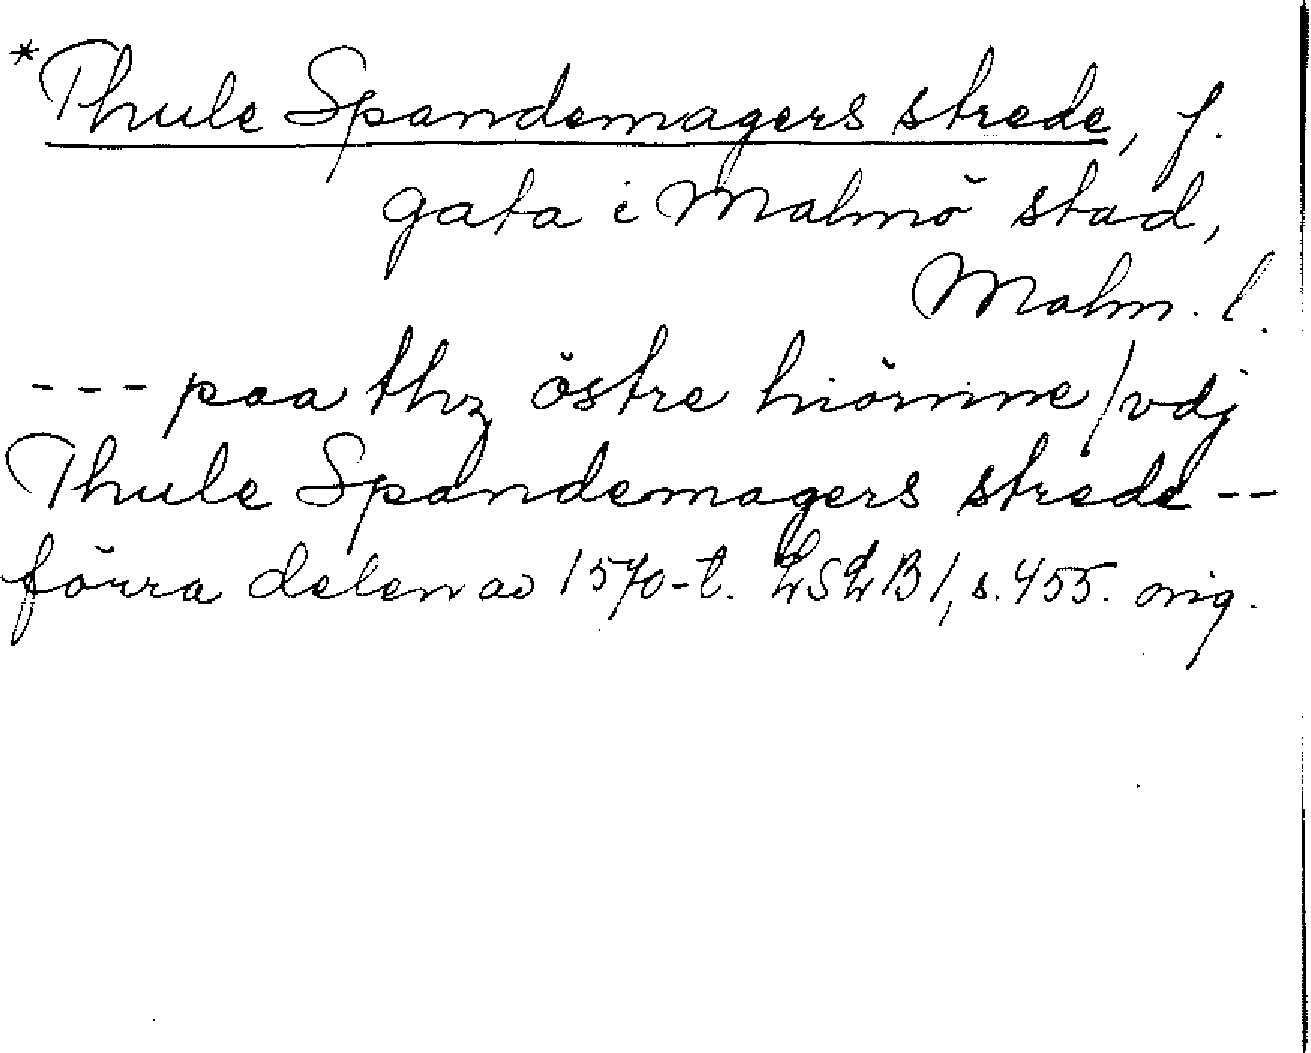 *Thule Spandemagers strede, f.
gata i Malmö stad,
Malm. l.
--- paa thz östre hiörnne / vdj
Thule Spandemagers strede --
förra delen av 1570-t. LSLB 1, s. 455. orig.